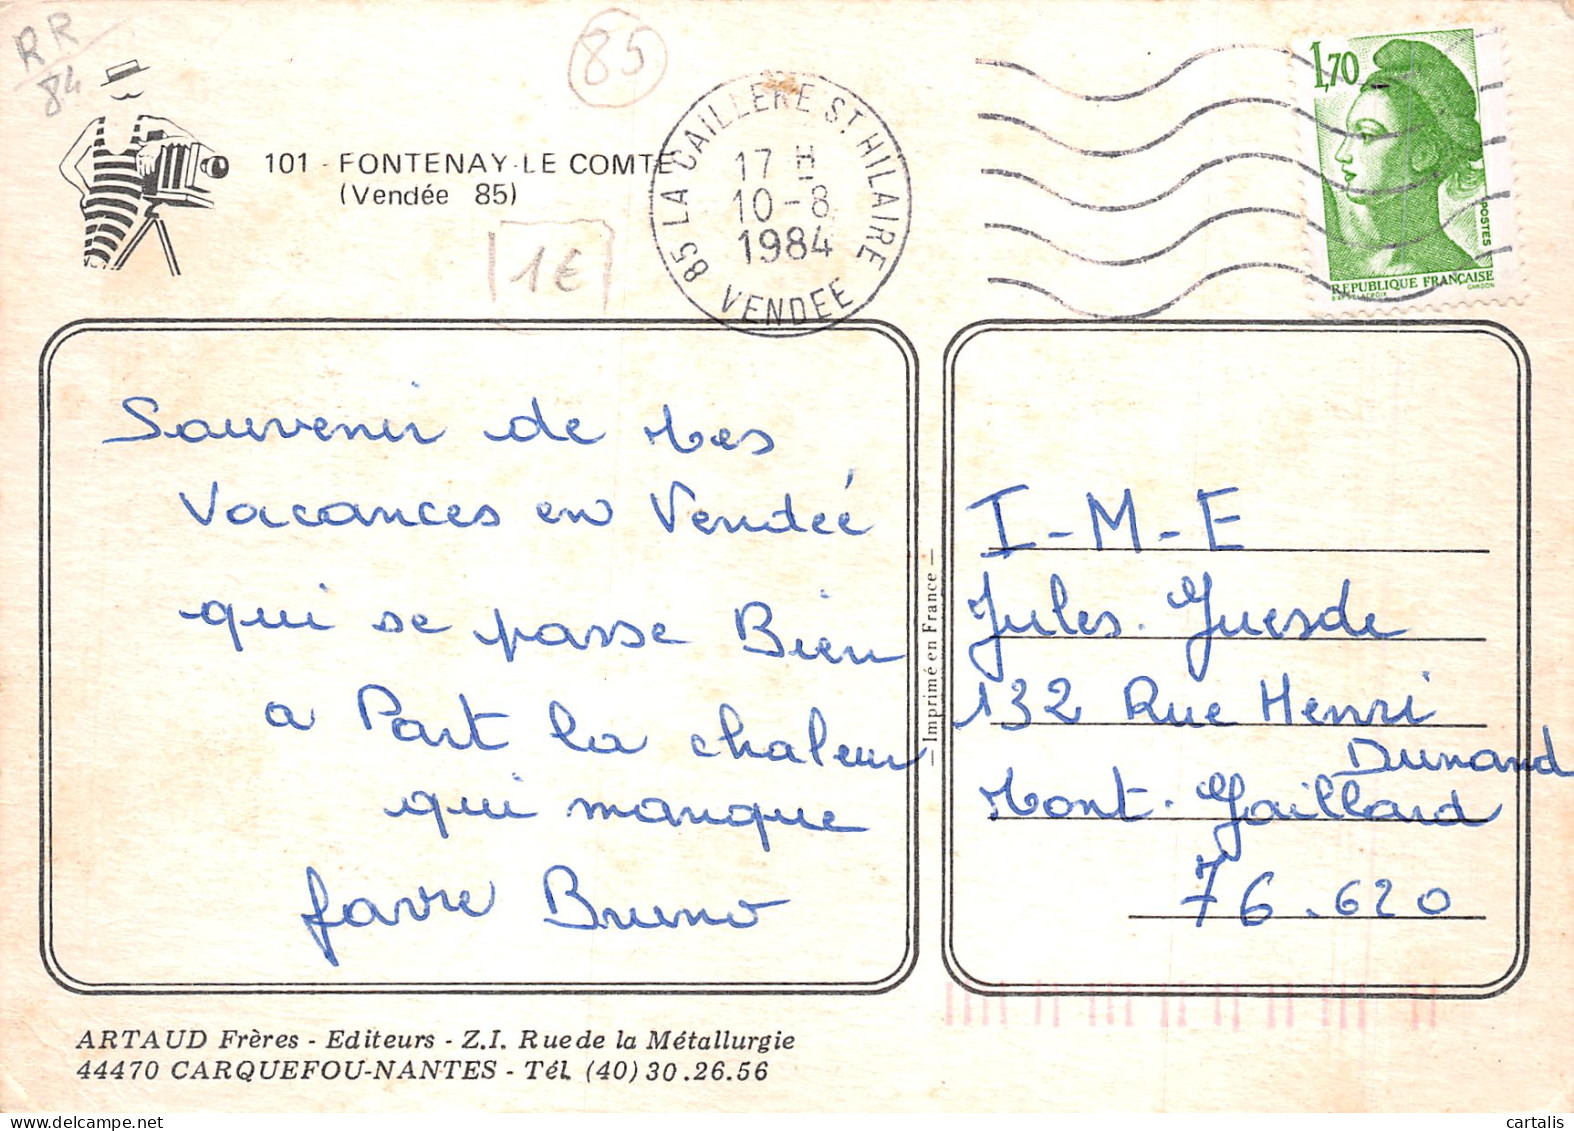 RR
84
85
101 - FONTENAY-LE COMTE
(Vendée 85)
1€
85 LA CAILLERE ST HILAIRE
17 H
10-8
1984
VENDEE
1,70
POSTES
REPUBLIQUE FRANÇAISE
D'AP. DELACROIX GANDON
Souvenir de Mes
Vacances en Vendée
qui se passe Bien
a Part la chaleur
qui manque
favre Bruno
— Imprimé en France —
I-M-E
Jules. Guesde
132 Rue Henri
Dunand
Mont. Gaillard
76.620
ARTAUD Frères - Editeurs - Z.I. Rue de la Métallurgie
44470 CARQUEFOU-NANTES - Tél. (40) 30.26.56
cartalis
delcampe.net